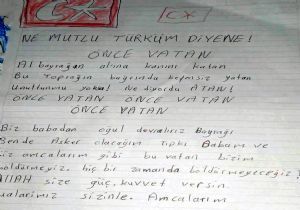 NE MUTLU TÜRKÜM DİYENE!
ÖNCE VATAN
Al bayrağan alına kanını katan
Bu Toprağın bağrında kefensiz yatan
Unuttunmu yoksa! Ne diyordu ATAN!
ÖNCE VATAN ÖNCE VATAN
ÖNCE VATAN
Biz babadan oğul devralırız Bayrağı
Bende Asker olacağım tıpkı Babam ve
siz amcalarım gibi bu vatan bizim
böldürmeyiz hiç bir zamanda böldürmeyeceğiz!
ALLAH size güç, kuvvet versin.
Dualarımız sizinle. Amcalarım